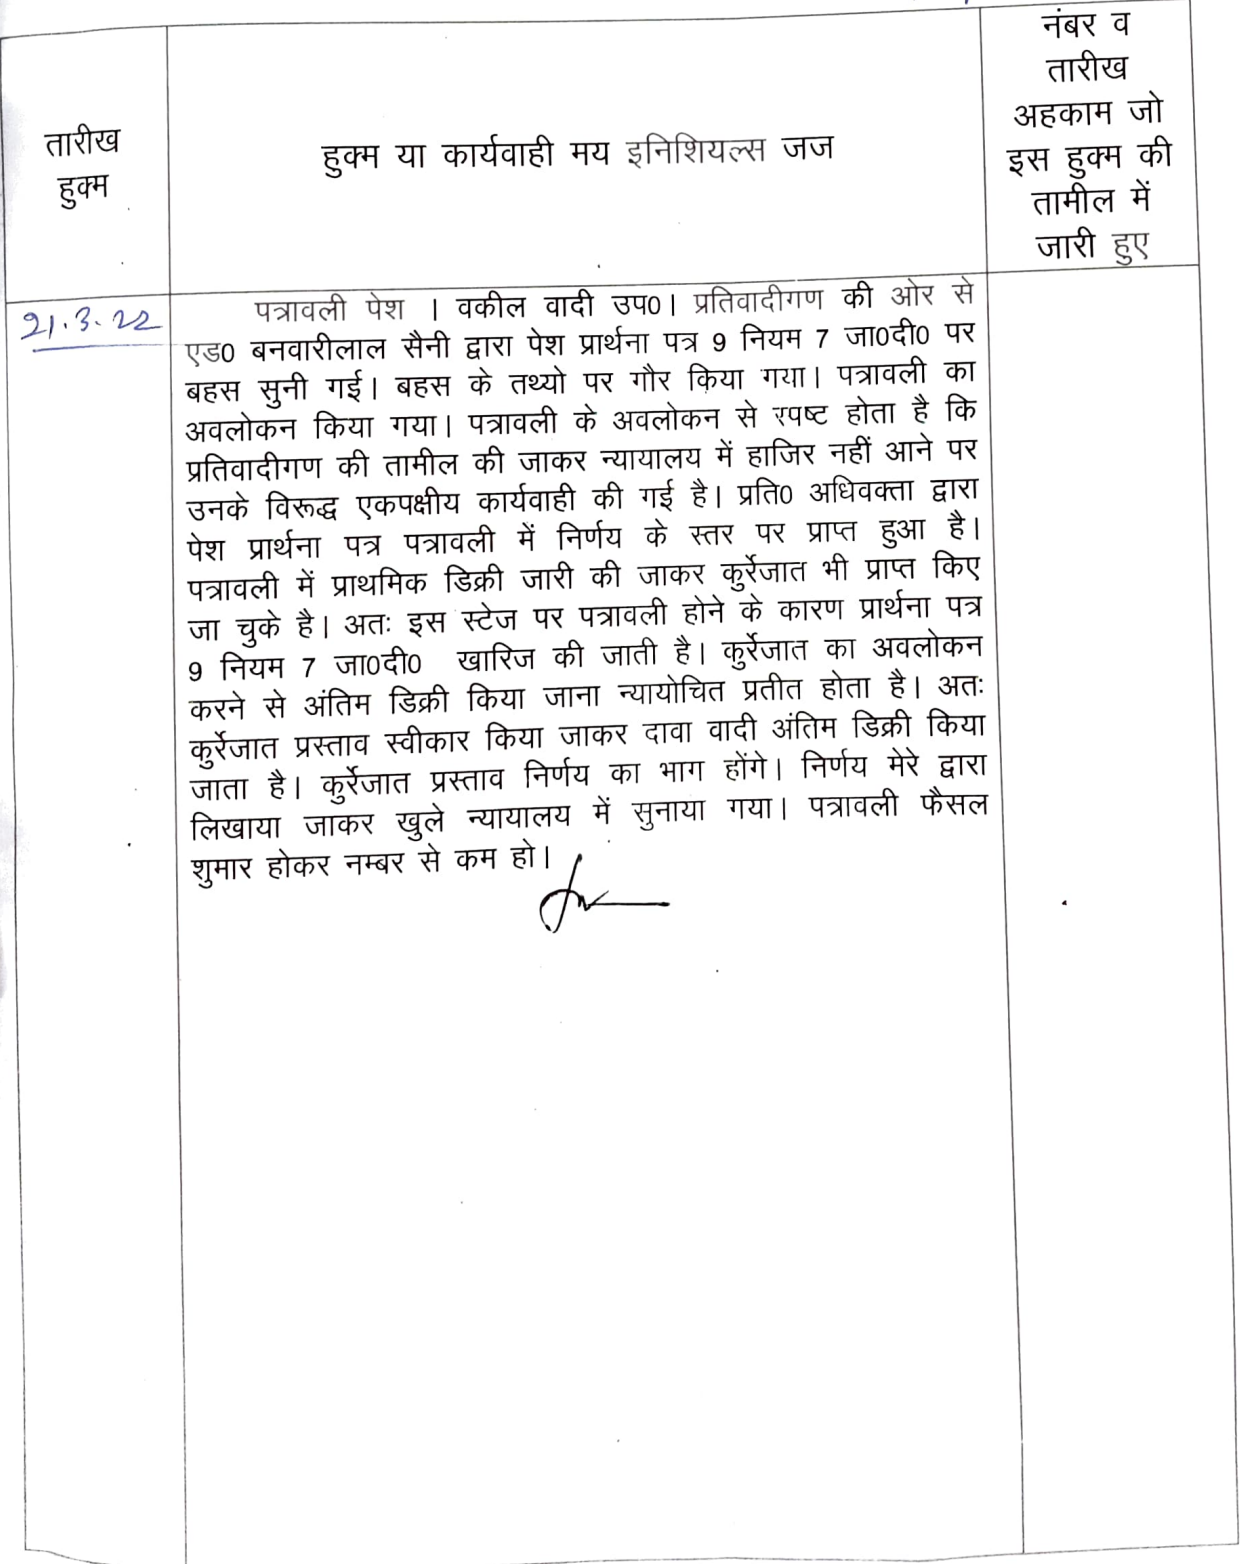 तारीख
हुक्म
हुक्म या कार्यवाही मय इनिशियल्स जज
नंबर व
तारीख
अहकाम जो
इस हुक्म की
तामील में
जारी हुए
21.3.22
पत्रावली पेश । वकील वादी उप0। प्रतिवादीगण की ओर से
एड0 बनवारीलाल सैनी द्वारा पेश प्रार्थना पत्र 9 नियम 7 जा0दी0 पर
बहस सुनी गई। बहस के तथ्यो पर गौर किया गया। पत्रावली का
अवलोकन किया गया। पत्रावली के अवलोकन से स्पष्ट होता है कि
प्रतिवादीगण की तामील की जाकर न्यायालय में हाजिर नहीं आने पर
उनके विरूद्ध एकपक्षीय कार्यवाही की गई है। प्रति0 अधिवक्ता द्वारा
पेश प्रार्थना पत्र पत्रावली में निर्णय के स्तर पर प्राप्त हुआ है।
पत्रावली में प्राथमिक डिक्री जारी की जाकर कुर्रेजात भी प्राप्त किए
जा चुके है। अतः इस स्टेज पर पत्रावली होने के कारण प्रार्थना पत्र
9 नियम 7 जा0दी0 खारिज की जाती है। कुर्रेजात का अवलोकन
करने से अंतिम डिक्री किया जाना न्यायोचित प्रतीत होता है। अतः
कुर्रेजात प्रस्ताव स्वीकार किया जाकर दावा वादी अंतिम डिक्री किया
जाता है। कुर्रेजात प्रस्ताव निर्णय का भाग होंगे। निर्णय मेरे द्वारा
लिखाया जाकर खुले न्यायालय में सुनाया गया। पत्रावली फैसल
शुमार होकर नम्बर से कम हो।